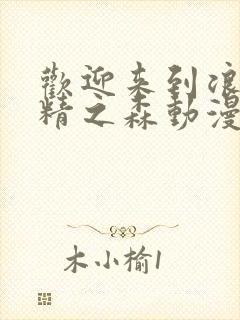 歡迎来到浪
精之森動漫
木小榆1